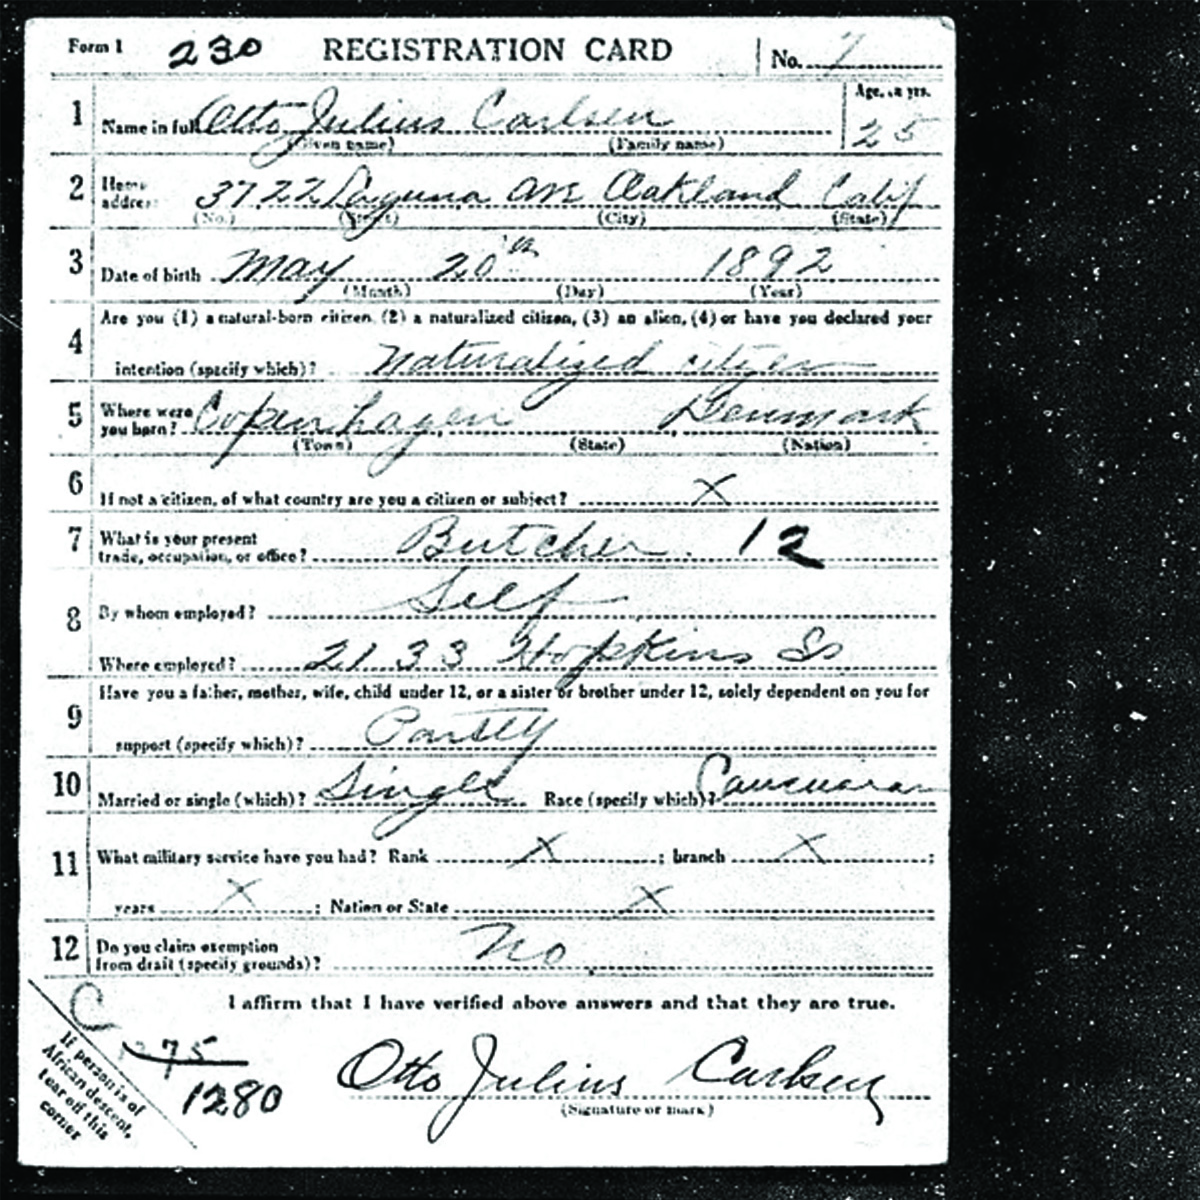 Form 1 230 REGISTRATION CARD No. 7
1 Name in full Otto Julius Carlsen Age, in yrs. 25
(Given name) (Family name)
2 Home address 3722 Laguna Ave Oakland Calif
(No.) (Street) (City) (State)
3 Date of birth May 20th 1892
(Month) (Day) (Year)
4 Are you (1) a natural-born citizen, (2) a naturalized citizen, (3) an alien, (4) or have you declared your
intention (specify which)? Naturalized citizen
5 Where were you born? Copenhagen Denmark
(Town) (State) (Nation)
6 If not a citizen, of what country are you a citizen or subject? X
7 What is your present
trade, occupation, or office? Butcher 12
8 By whom employed? Self
Where employed? 2133 Hopkins St
9 Have you a father, mother, wife, child under 12, or a sister or brother under 12, solely dependent on you for
support (specify which)? Partly
10 Married or single (which)? Single Race (specify which)?
11 What military service have you had? Rank X ; branch X ;
years X ; Nation or State X
12 Do you claim exemption
from draft (specify grounds)? No
I affirm that I have verified above answers and that they are true.
C
1275
1280
Otto Julius Carlsen
(Signature or mark)
If person is of
African descent,
tear off this
corner